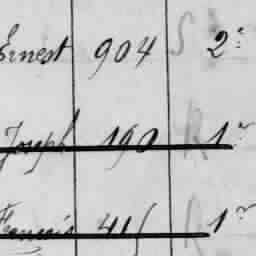 Ernest 904 S 2e
Joseph 190 R 1er
François 415 R 1er